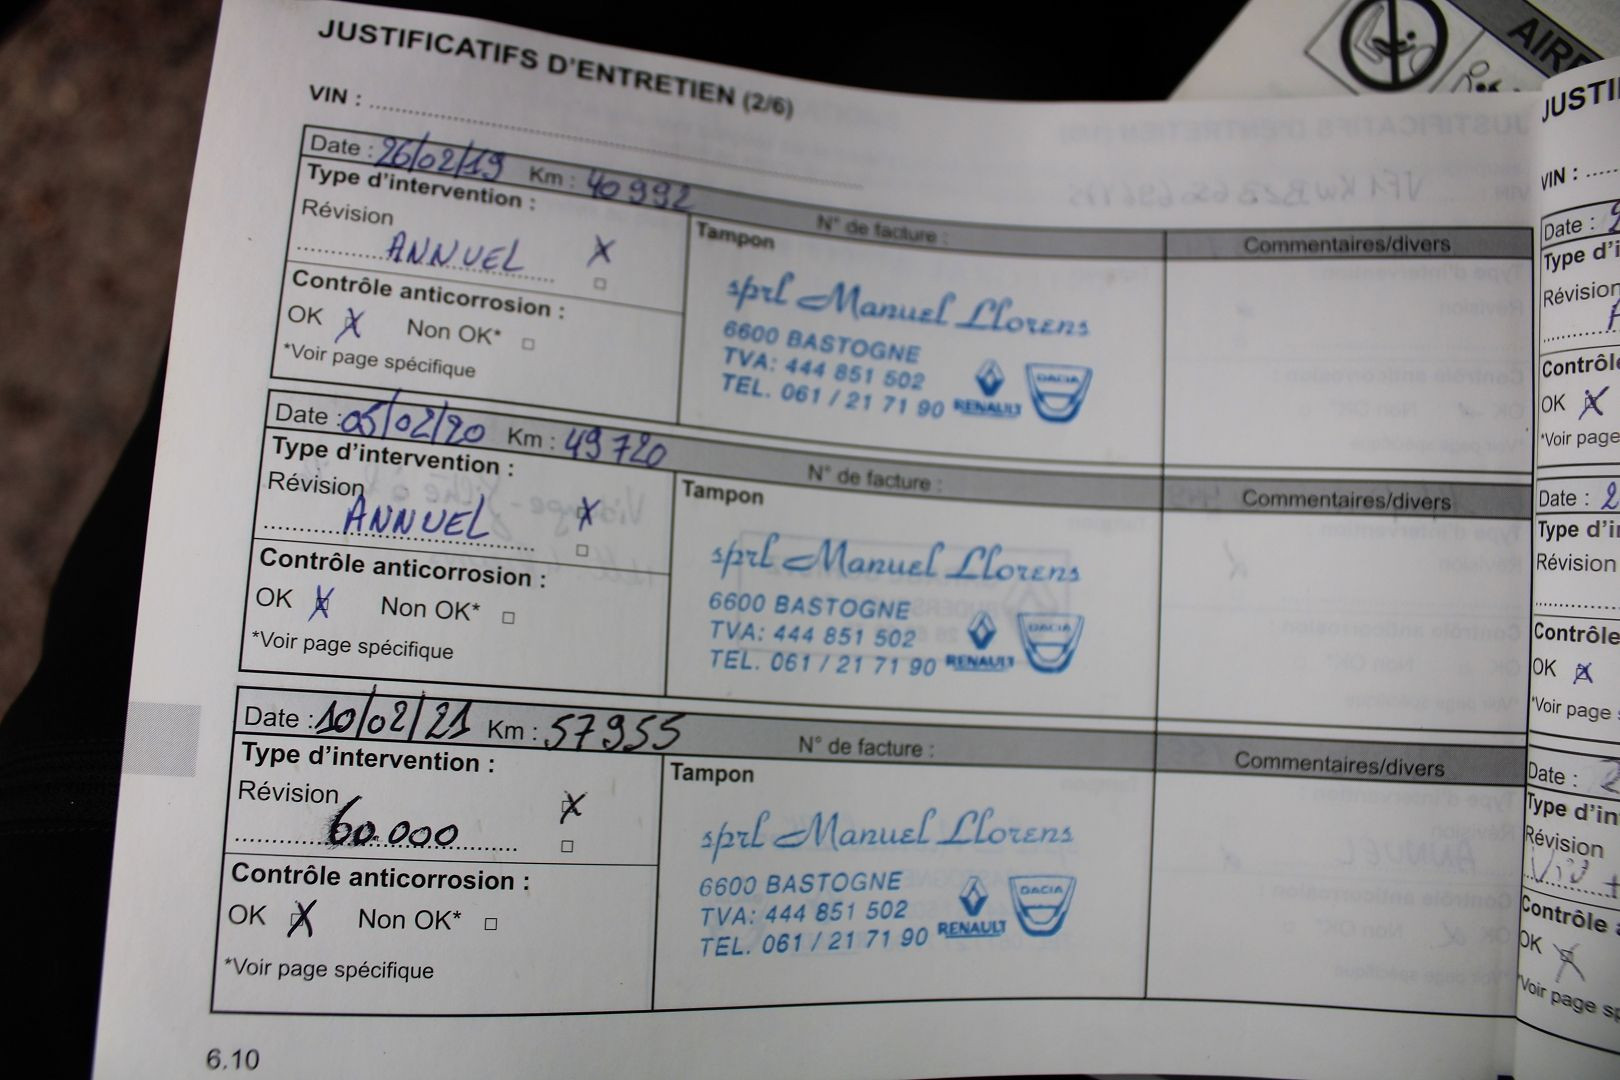 JUSTIFICATIFS D'ENTRETIEN (2/6)
VIN :
Date : 26/02/19 Km : 40992
N° de facture :
Type d'intervention :
Révision
ANNUEL
Contrôle anticorrosion :
OK Non OK*
*Voir page spécifique
Tampon
sprl Manuel Llorens
6600 BASTOGNE
TVA: 444 851 502
TEL. 061 / 21 71 90
RENAULT
DACIA
Commentaires/divers
Date : 05/02/20 Km : 49720
N° de facture :
Type d'intervention :
Révision
ANNUEL
Contrôle anticorrosion :
OK Non OK*
*Voir page spécifique
Tampon
sprl Manuel Llorens
6600 BASTOGNE
TVA: 444 851 502
TEL. 061 / 21 71 90
RENAULT
DACIA
Commentaires/divers
Date : 10/02/21 Km : 57955
N° de facture :
Type d'intervention :
Révision
60.000
Contrôle anticorrosion :
OK Non OK*
*Voir page spécifique
Tampon
sprl Manuel Llorens
6600 BASTOGNE
TVA: 444 851 502
TEL. 061 / 21 71 90
RENAULT
DACIA
Commentaires/divers
6.10
VIN :
Date :
Révision
OK
*Voir page
Date : 2
Révision
Contrôle
OK
*Voir page
Date :
Révision
Contrôle
OK